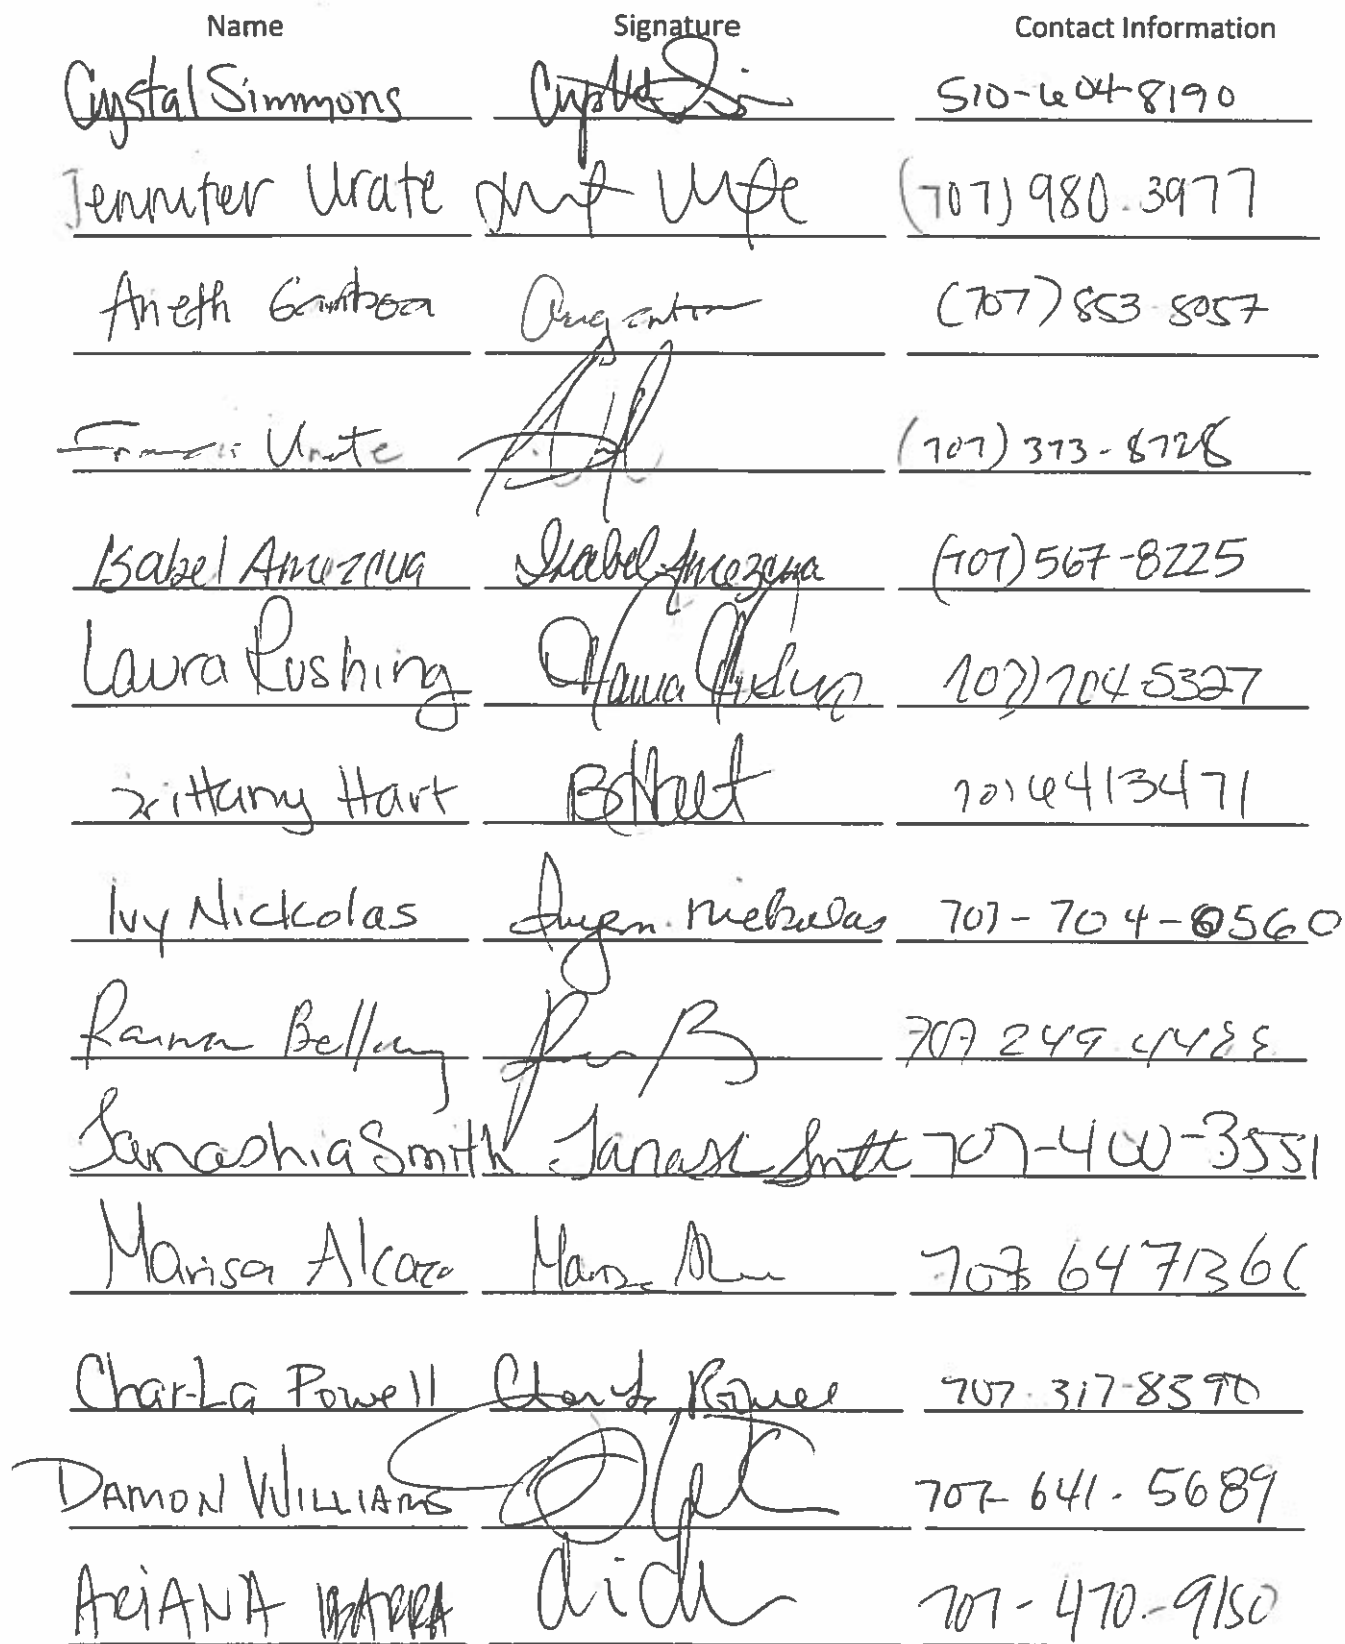 Name Signature Contact Information
Crystal Simmons 510-604-8190
Jennifer Urate (707) 980.3977
Aneth Gamboa (707) 853-8057
Urate (707) 373-8728
Isabel Amezcua Isabel Amezcua (707) 567-8225
Laura Rushing Laura Rushing 707) 704-5327
Brittany Hart BHart 707 6413471
Ivy Nickolas Nickolas 707-704-6560
Bellamy 707 249 4488
Janashia Smith Janash Smith 707-400-3551
Marisa Alcaraz 707
Char-La Powell 707.317-8590
DAMON WILLIAMS 707-641.5689
ARIANA IBARRA 707-470-9150